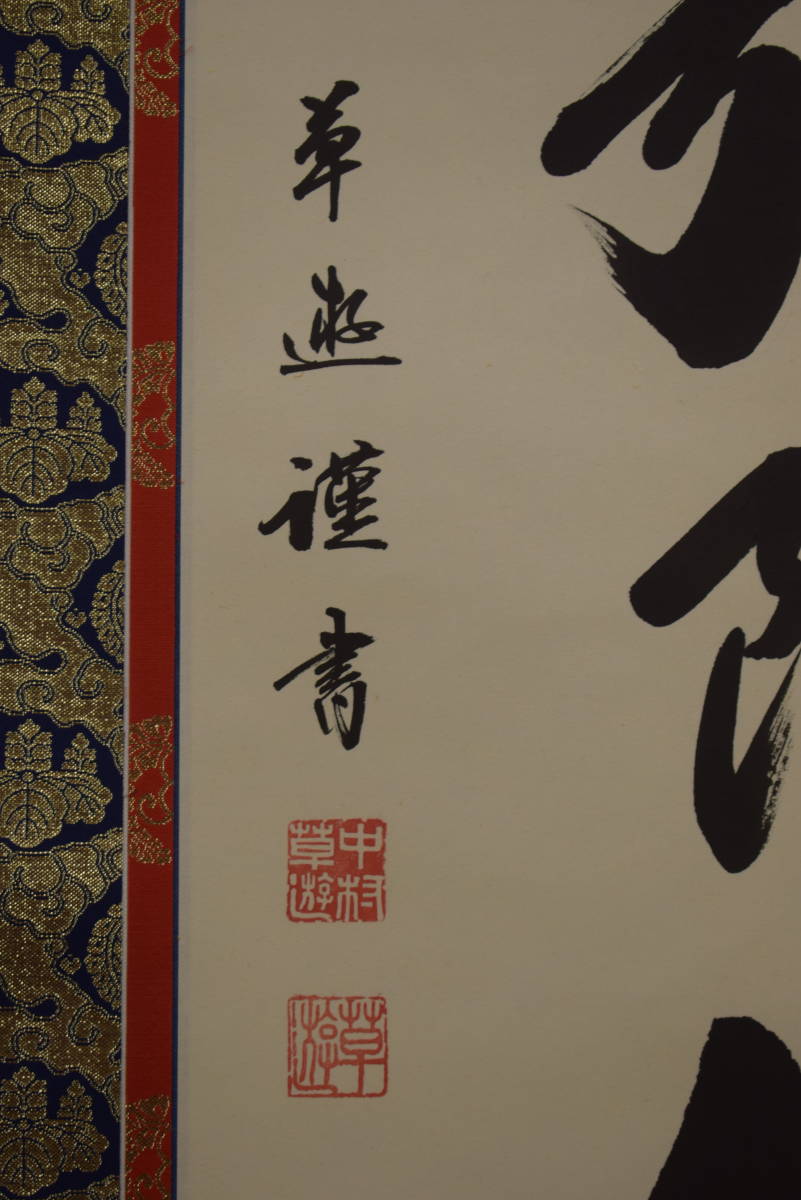 草遊謹書
中村草遊
草遊